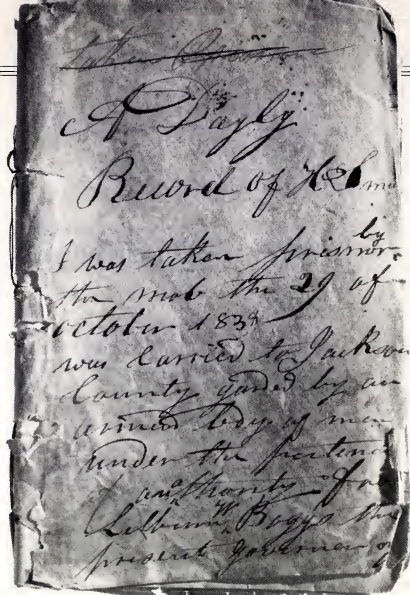 taken
A Dayly
Record of H S
I was taken prisnor by
the mob the 29 of
october 1838
was carried to Jackson
County garded by an
armed body of men
under the pretence
of authority from
Lilburn W Boggs the
present governer of